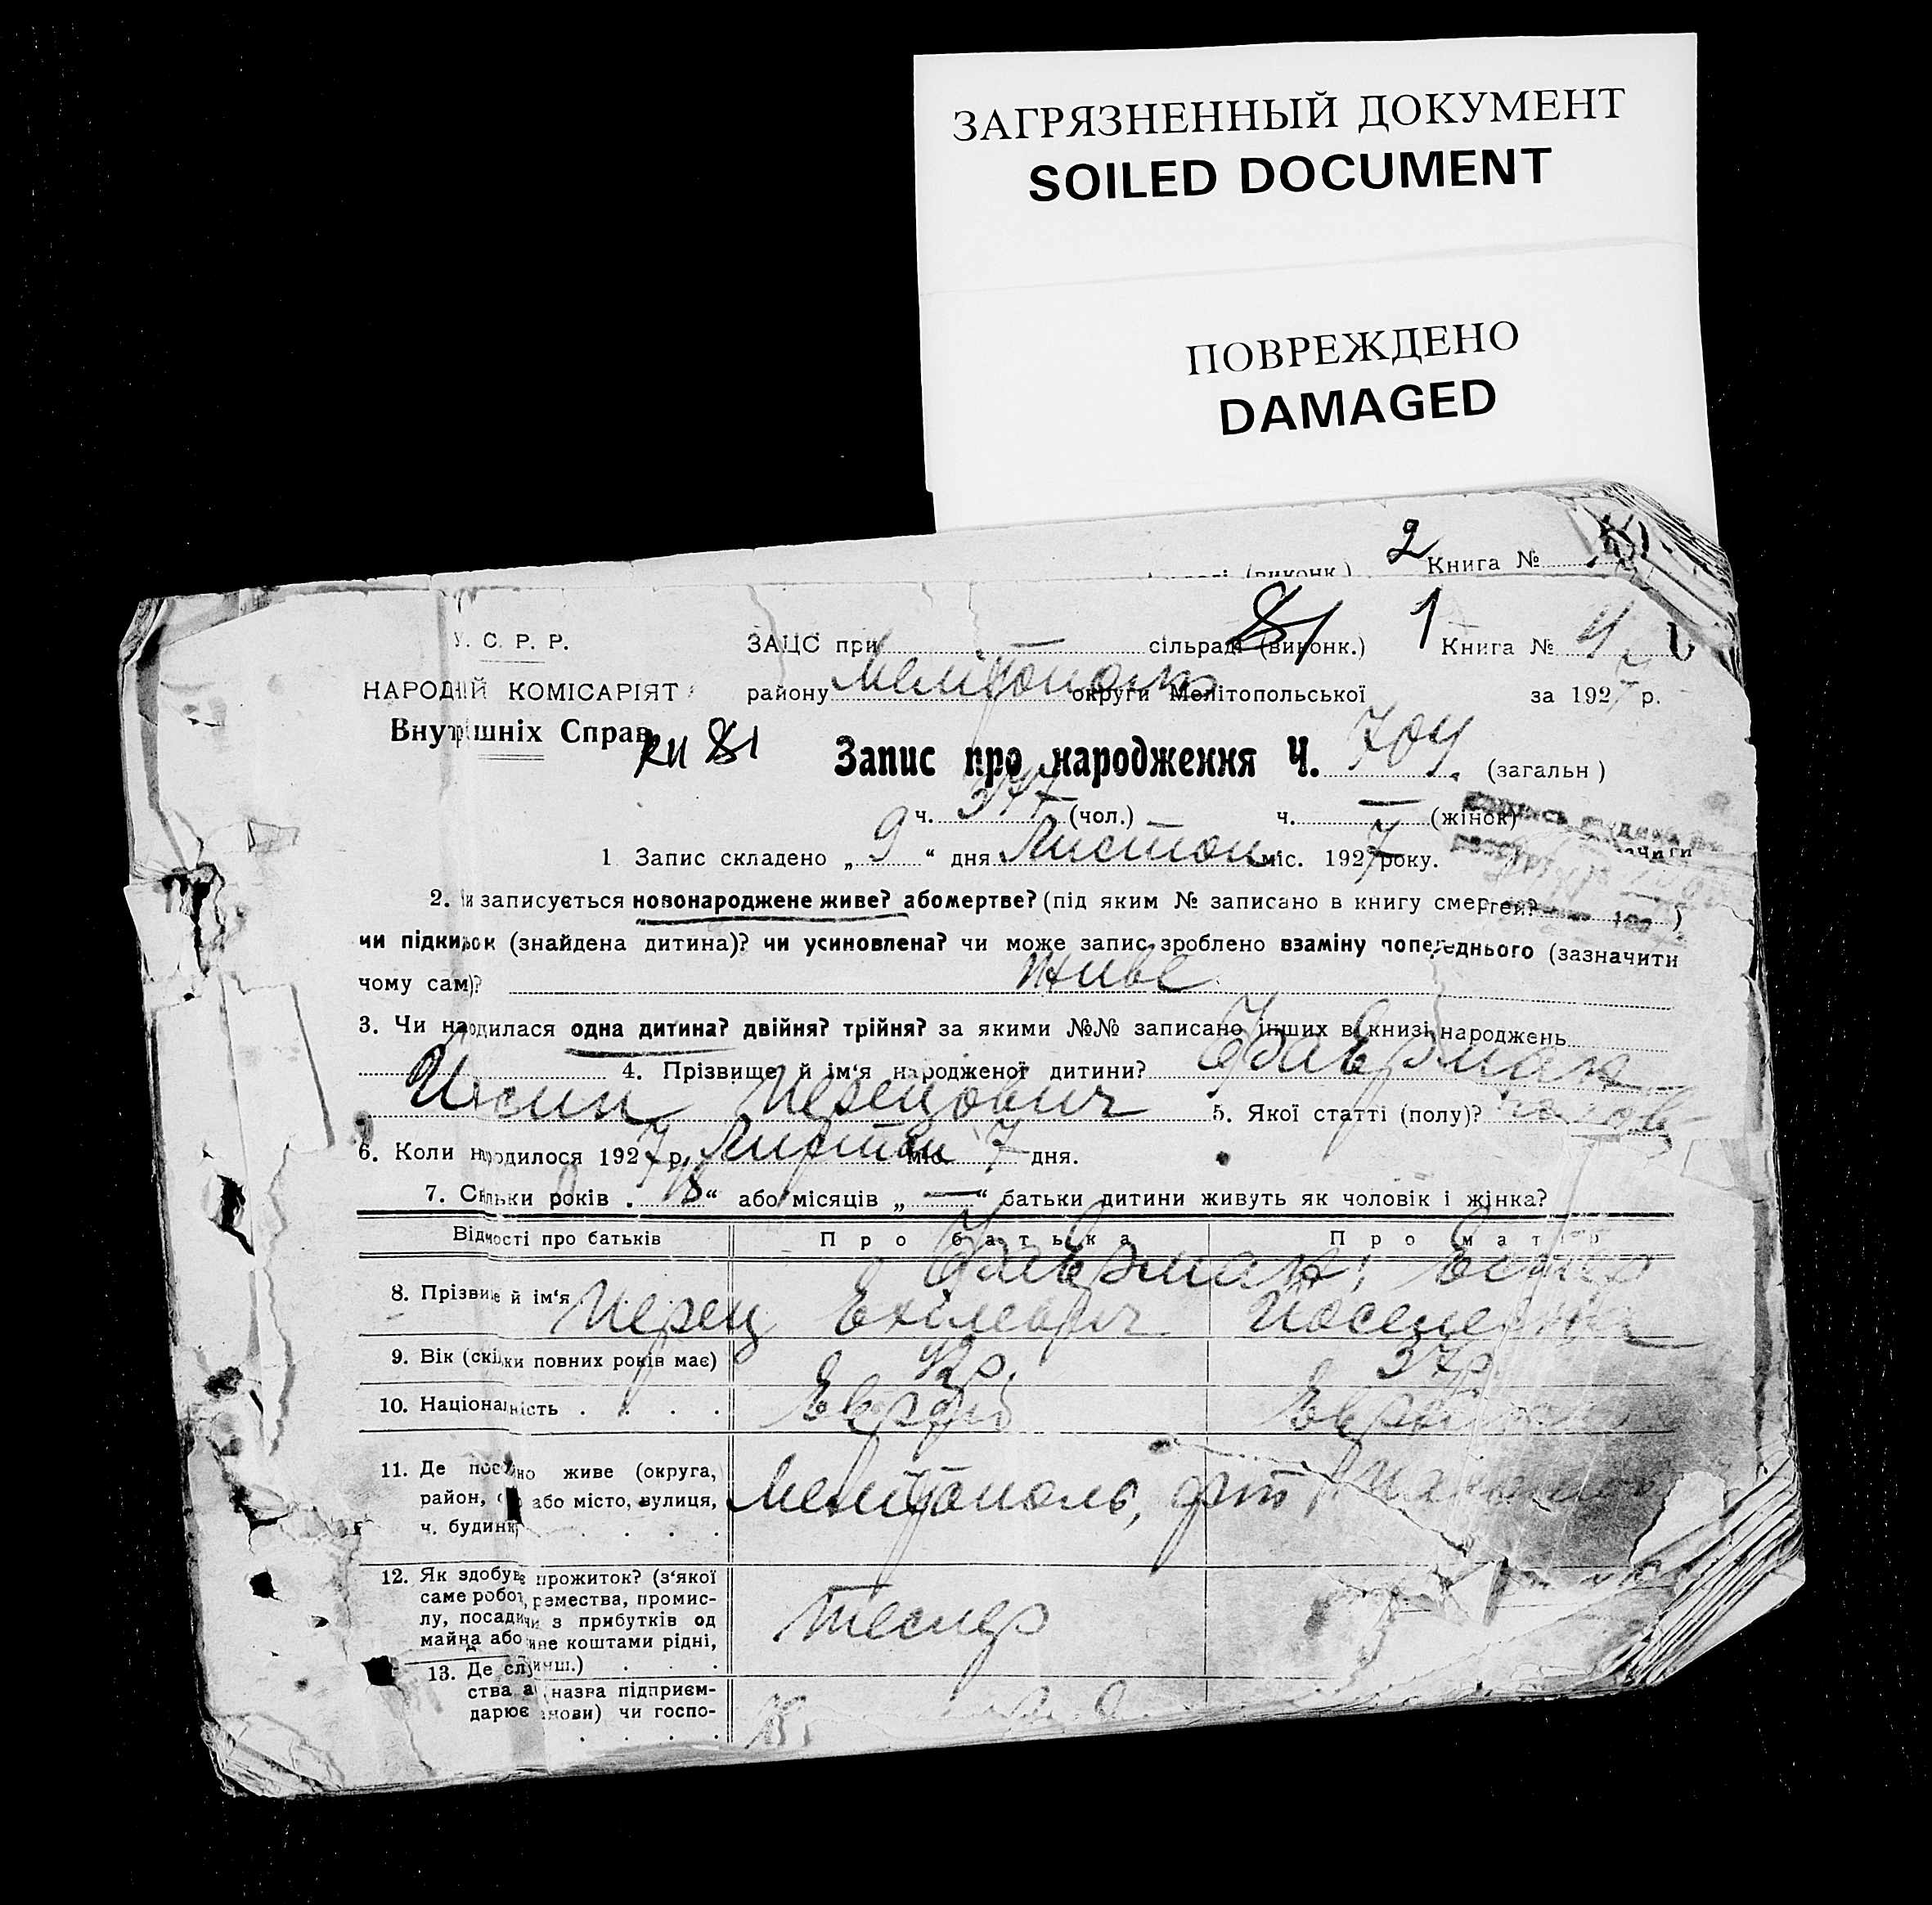 ЗАГРЯЗНЕННЫЙ ДОКУМЕНТ
SOILED DOCUMENT
ПОВРЕЖДЕНО
DAMAGED
(виконк.) 2 Книга №
81 1
У. С. Р. Р. ЗАЦС при сільраді (виконк.) Книга № 4
НАРОДНІЙ КОМІСАРІЯТ району Мелітополь округи Мелітопольської за 1927 р.
Внутрішніх Справ
81 Запис про народження Ч. 704 (загальн)
ч. 377 (чол.) ч. — (жінок)
1 Запис складено „ 9 “ дня Листоп. міс. 1927 року.
2. Чи записується новонароджене живе? або мертве? (під яким № записано в книгу смертей? )
чи підкидок (знайдена дитина)? чи усиновлена? чи може запис зроблено взаміну попереднього (зазначити
чому сам)? живе
3. Чи народилася одна дитина? двійня? трійня? за якими №№ записано інших в книзі народжень
4. Прізвище й ім‘я народженої дитини? Фаверман
Иосип Перецович 5. Якої статті (полу)? чолов
6. Коли народилося 1927 р. Листоп міс. 7 дня.
7. Скільки років „ 18 “ або місяців „ — “ батьки дитини живуть як чоловік і жінка?
Відмості про батьків Про батька Про матір
8. Прізвище й ім‘я Фаверман Перец Ехілевич
9. Вік (скільки повних років має) 42 р. 37 р.
10. Національність . . . . Еврей Еврейка
11. Де постійно живе (округа, Мелітополь,
район, або місто, вулиця,
ч. будинку . . . .
12. Як здобуває прожиток? (з‘якої
саме роботи, ремества, промис-
лу, посади чи з прибутків од
майна або живе коштами рідні,
інш.) . . . Тесляр
13. Де служить (назва підприєм-
ства, установи) чи госпо-
дарює . . . .